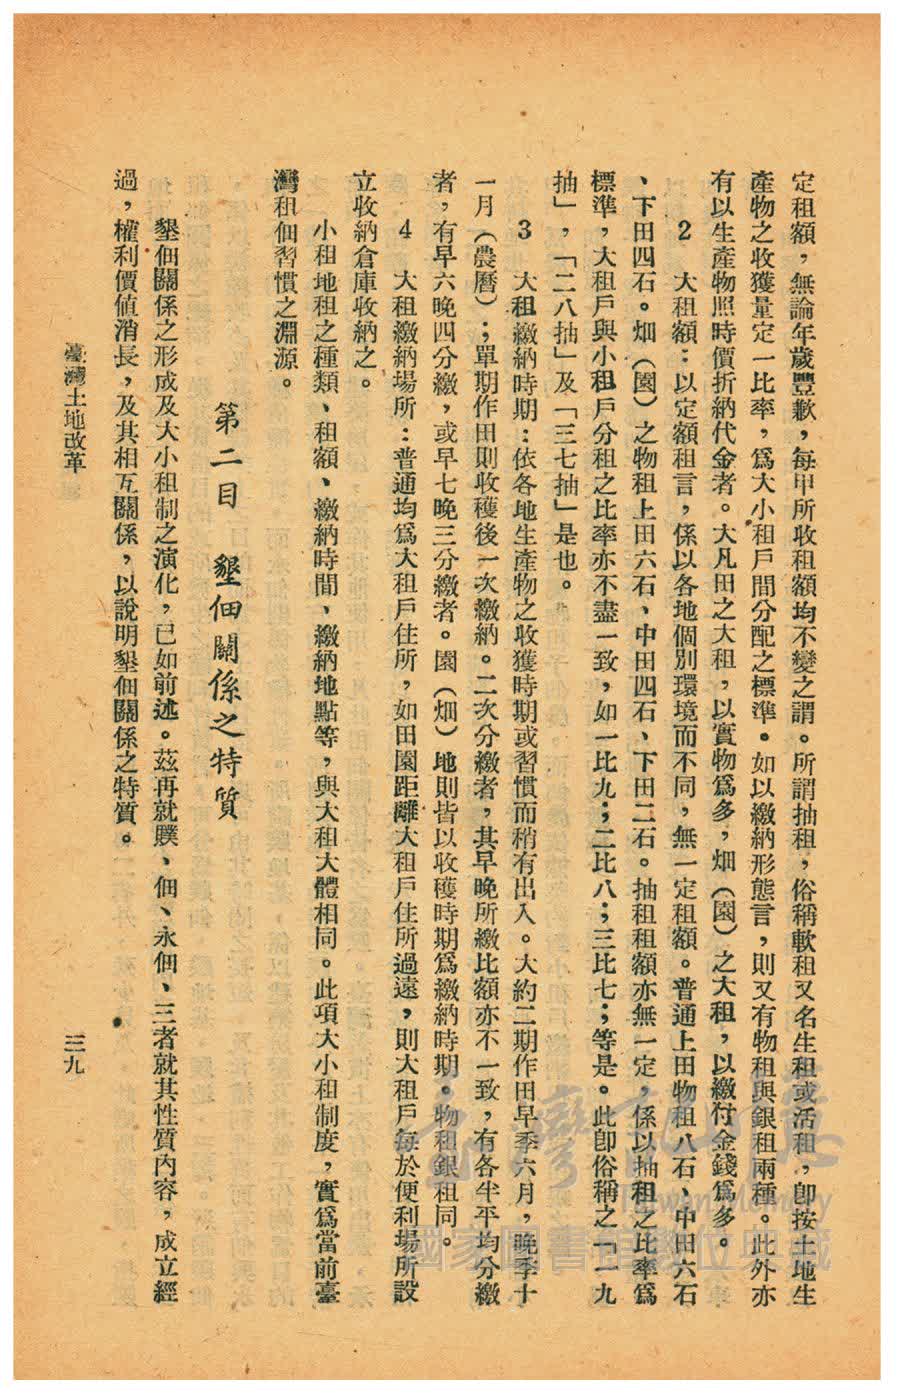 定租額，無論年歲豐歉，每甲所收租額均不變之謂。所謂抽租，俗稱軟租又名生租或活租，卽按土地生
產物之收獲量定一比率，爲大小租戶間分配之標準。如以繳納形態言，則又有物租與銀租兩種。此外亦
有以生產物照時價折納代金者。大凡田之大租，以實物爲多，畑（園）之大租，以繳付金錢爲多。
2　大租額：以定額租言，係以各地個別環境而不同，無一定租額。普通上田物租八石、中田六石
、下田四石。畑（園）之物租上田六石、中田四石、下田二石。抽租租額亦無一定，係以抽租之比率爲
標準，大租戶與小租戶分租之比率亦不盡一致，如一比九；二比八；三比七；等是。此卽俗稱之「一九
抽」，「二八抽」及「三七抽」是也。
3　大租繳納時期：依各地生產物之收獲時期或習慣而稍有出入。大約二期作田早季六月，晚季十
一月（農曆）；單期作田則收穫後一次繳納。二次分繳者，其早晚所繳比額亦不一致，有各半平均分繳
者，有早六晚四分繳，或早七晚三分繳者。園（畑）地則皆以收穫時期爲繳納時期。物租銀租同。
4　大租繳納場所：普通均爲大租戶住所，如田園距離大租戶住所過遠，則大租戶每於便利場所設
立收納倉庫收納之。
小租地租之種類、租額、繳納時間、繳納地點等，與大租大體相同。此項大小租制度，實爲當前臺
灣租佃習慣之淵源。
第二目　墾佃關係之特質
墾佃關係之形成及大小租制之演化，已如前述。茲再就贌、佃、永佃、三者就其性質內容，成立經
過，權利價值消長，及其相互關係，以說明墾佃關係之特質。
臺灣土地改革
三九
臺灣記憶
Taiwan Memory
國家圖書館數位典藏